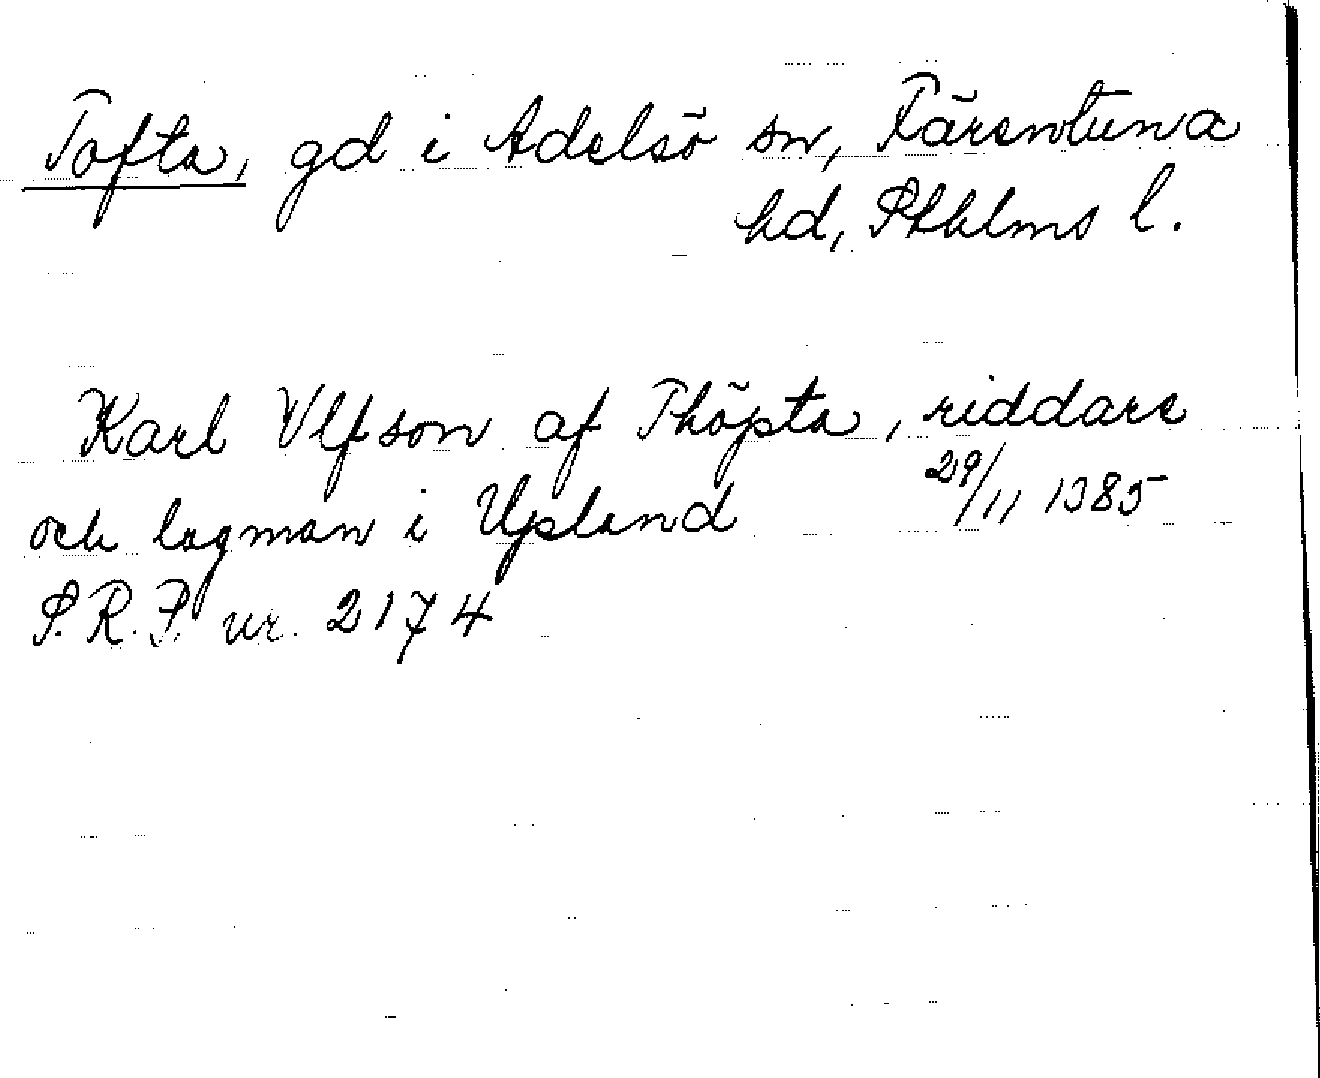 Tofta, gd i Adelsö sn, Färentuna
hd, Sthlms l.
Karl Ulfson af Thöpta, riddare
och lagman i Upland 29/11 1385
S.R.P. nr. 2174